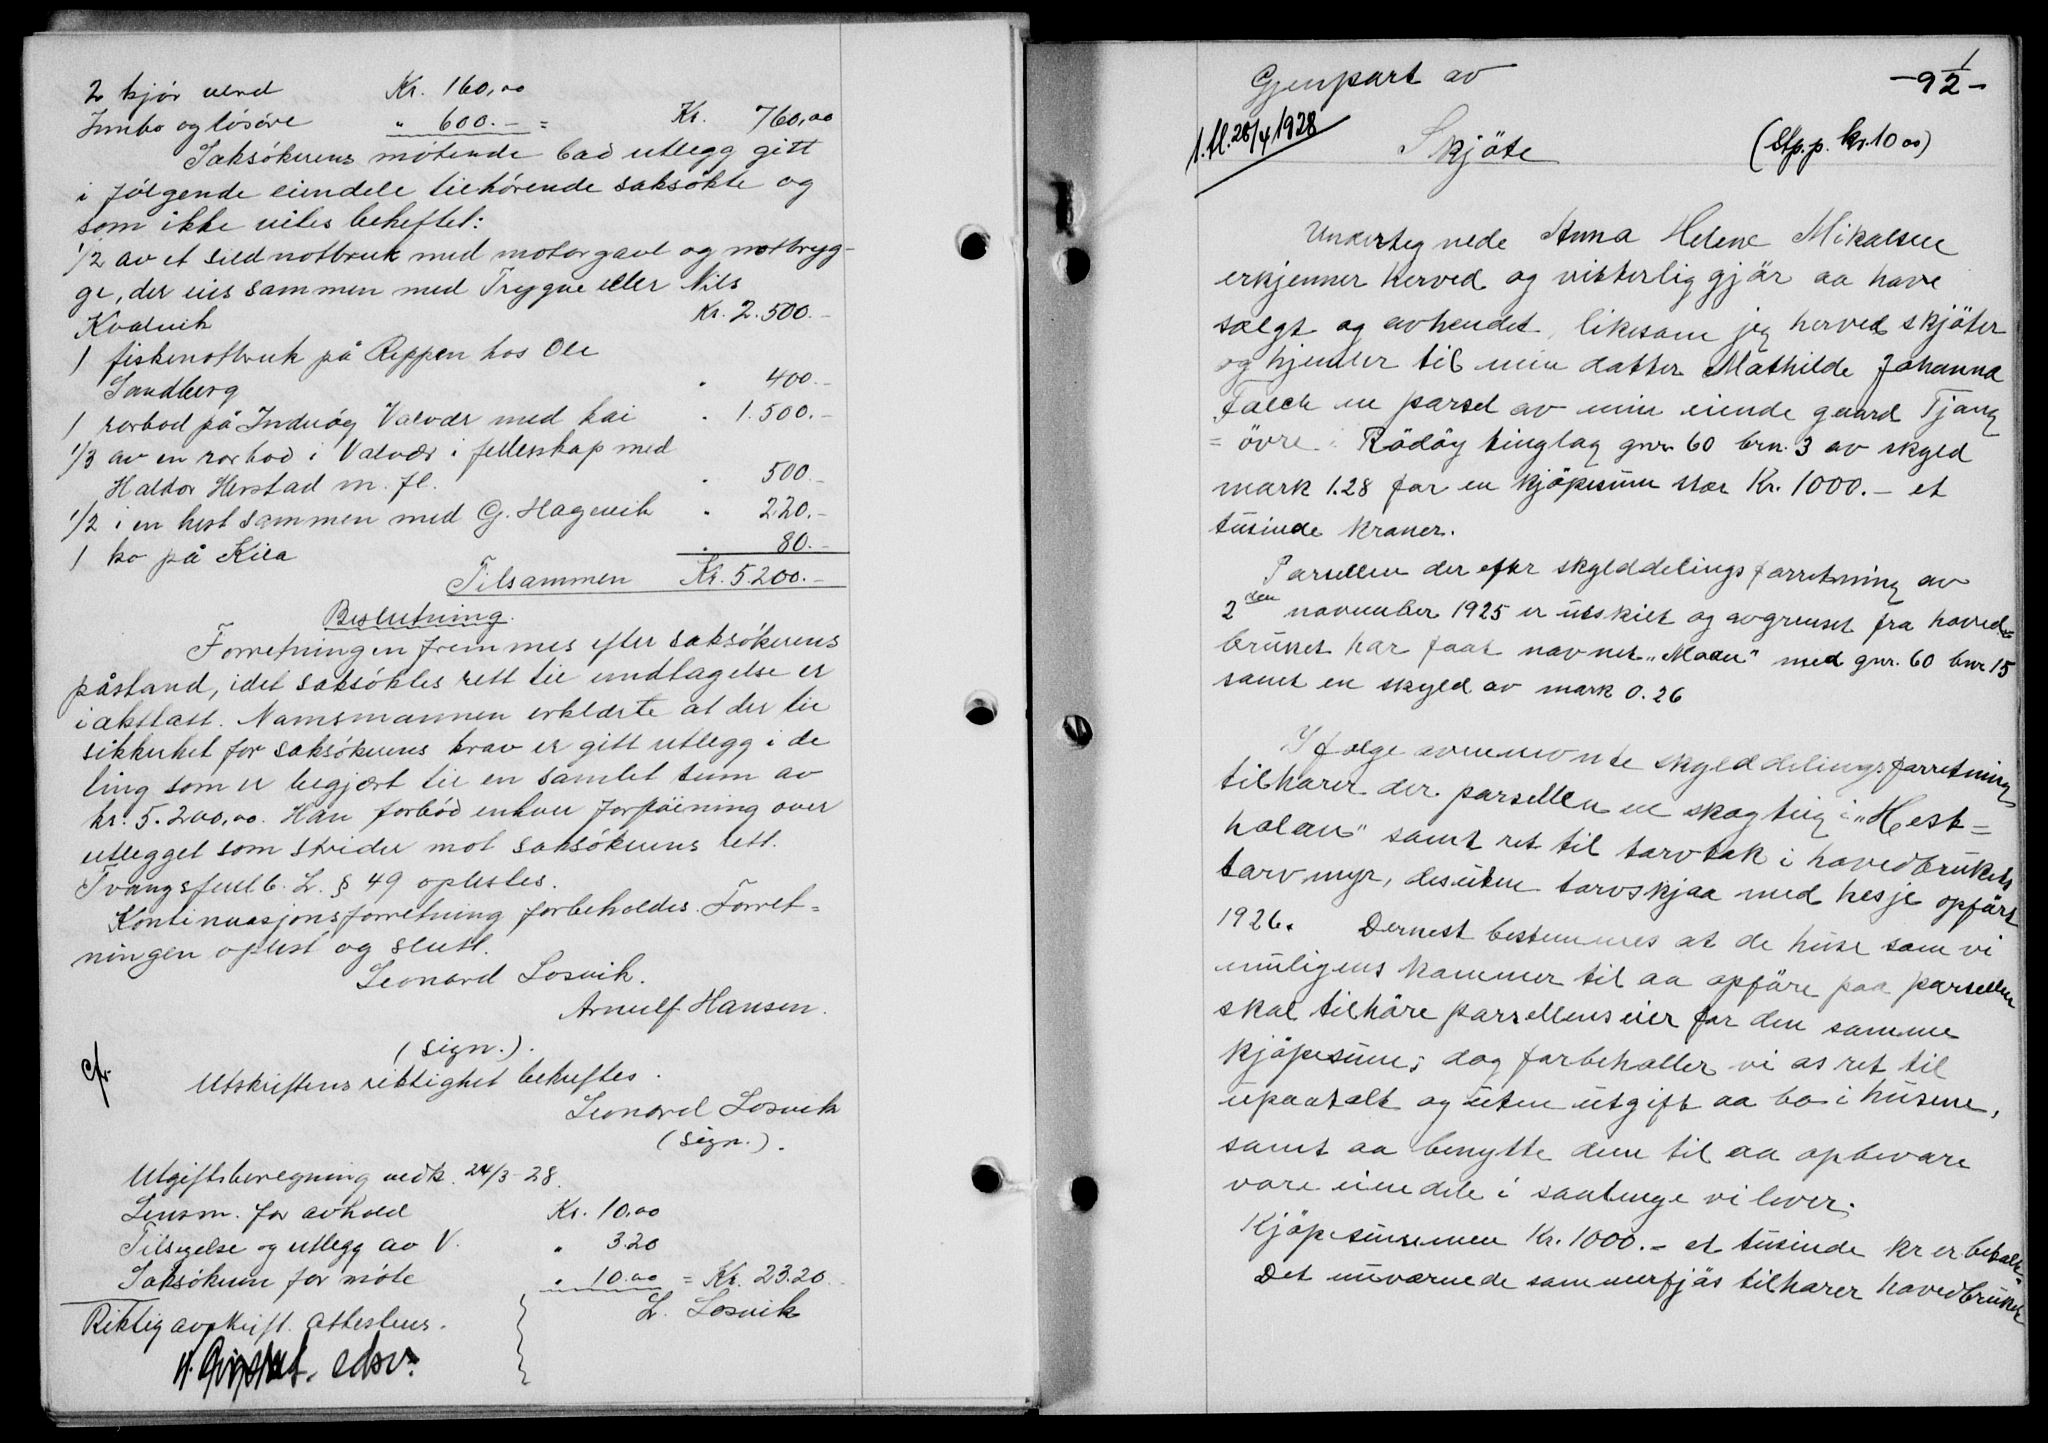 2 kjör verd Kr. 160,00
Innbo og løsøre " 600.- = Kr. 760,00
Saksökerens møtende bad utlegg gitt
i følgende eiendele tilhørende saksøkte og
som ikke vites beheftet:
1/2 av et sildnotbruk med motorgavl og notbryg-
ge, der eies sammen med Trygve eller Nils
Kvalvik Kr. 2.500.-
1 fiskenotbruk på Reppen hos Ole
Sandberg " 400.-
1 rorbod på Indreøy Valvær med kai " 1.500.-
1/3 av en rorbod i Valvær i felleskap med
Haldor Herstad m. fl. " 500.-
1/2 i en hest sammen med G. Hagevik " 220.-
1 ko på Kila " 80.-
Tilsammen Kr. 5.200.-
Beslutning.
Forretningen fremmes efter saksøkerens
påstand, idet saksøktes rett til undtagelse er
iakttatt. Namsmannen erklærte at der til
sikkerhet for saksøkerens krav er gitt utlegg i de
ting som er begjært til en samlet sum av
kr. 5.200,00. Han forbød enhver forføining over
utlegget som strider mot saksøkerens rett.
Tvangsfullb. L. § 49 oplestes.
Kontinuasjonsforretning forbeholdes. Forret=
ningen oplest og slutt.
Leonard Losvik.
Arnulf Hansen.
(sign.).
cfr.
Utskriftens riktighet bekreftes.
Leonard Losvik
(sign.).
Utgiftsberegning vedk. 24/3-28.
Lensm. for avhold Kr. 10,00
Tilsigelse og utlegg av V. " 3.20
Saksøkeren for møte " 10.00 = Kr. 23.20.
L. Losvik
Riktig avskrift attesteres.
-92 1/2-
Gjenpart av
1. fl. 28/4 1928
Skjöte (Stp.p. kr. 10 00)
Undertegnede Anna Helene Mikalsen
erkjenner herved og vitterlig gjör aa have
solgt og avhendet, likesom jeg herved skjöter
og hjemler til min datter Mathilde Johanna
Falch en parsel av min eiende gaard Tjong
= övre i Rödöy tinglag gnr. 60 brn. 3 av skyld
mark 1.28 for en kjöpesum stor Kr. 1000.- et
tusinde kroner.
Parsellen der efter skylddelingsforretning av
2den november 1925 er utskilt og avgrenset fra hoved=
bruket har faat navnet "Moen" med gnr. 60 bnr. 15
samt en skyld av mark 0.26
Ifölge avnemvnte skylddelingsforretning
tilhörer der parsellen en skogteig i "Hest=
holan" samt ret til torvtak i hovedbrukets
torvmyr, desuten torvskjaa med hesje opfört
1926. Dernest bestemmes at de huse som vi
muligens kommer til aa opföre paa parsellen
skal tilhöre parsellens eier for den samme
kjöpesum; dog forbeholder vi os ret til
upaatalt og uten utgift aa bo i husene,
samt aa benytte dem til aa opbevare
vore eiendele i saalenge vi lever.
Kjöpesummen Kr. 1000.- et tusinde kr er betalt.
Det nuværende sommerfjös tilhører hovedbruket